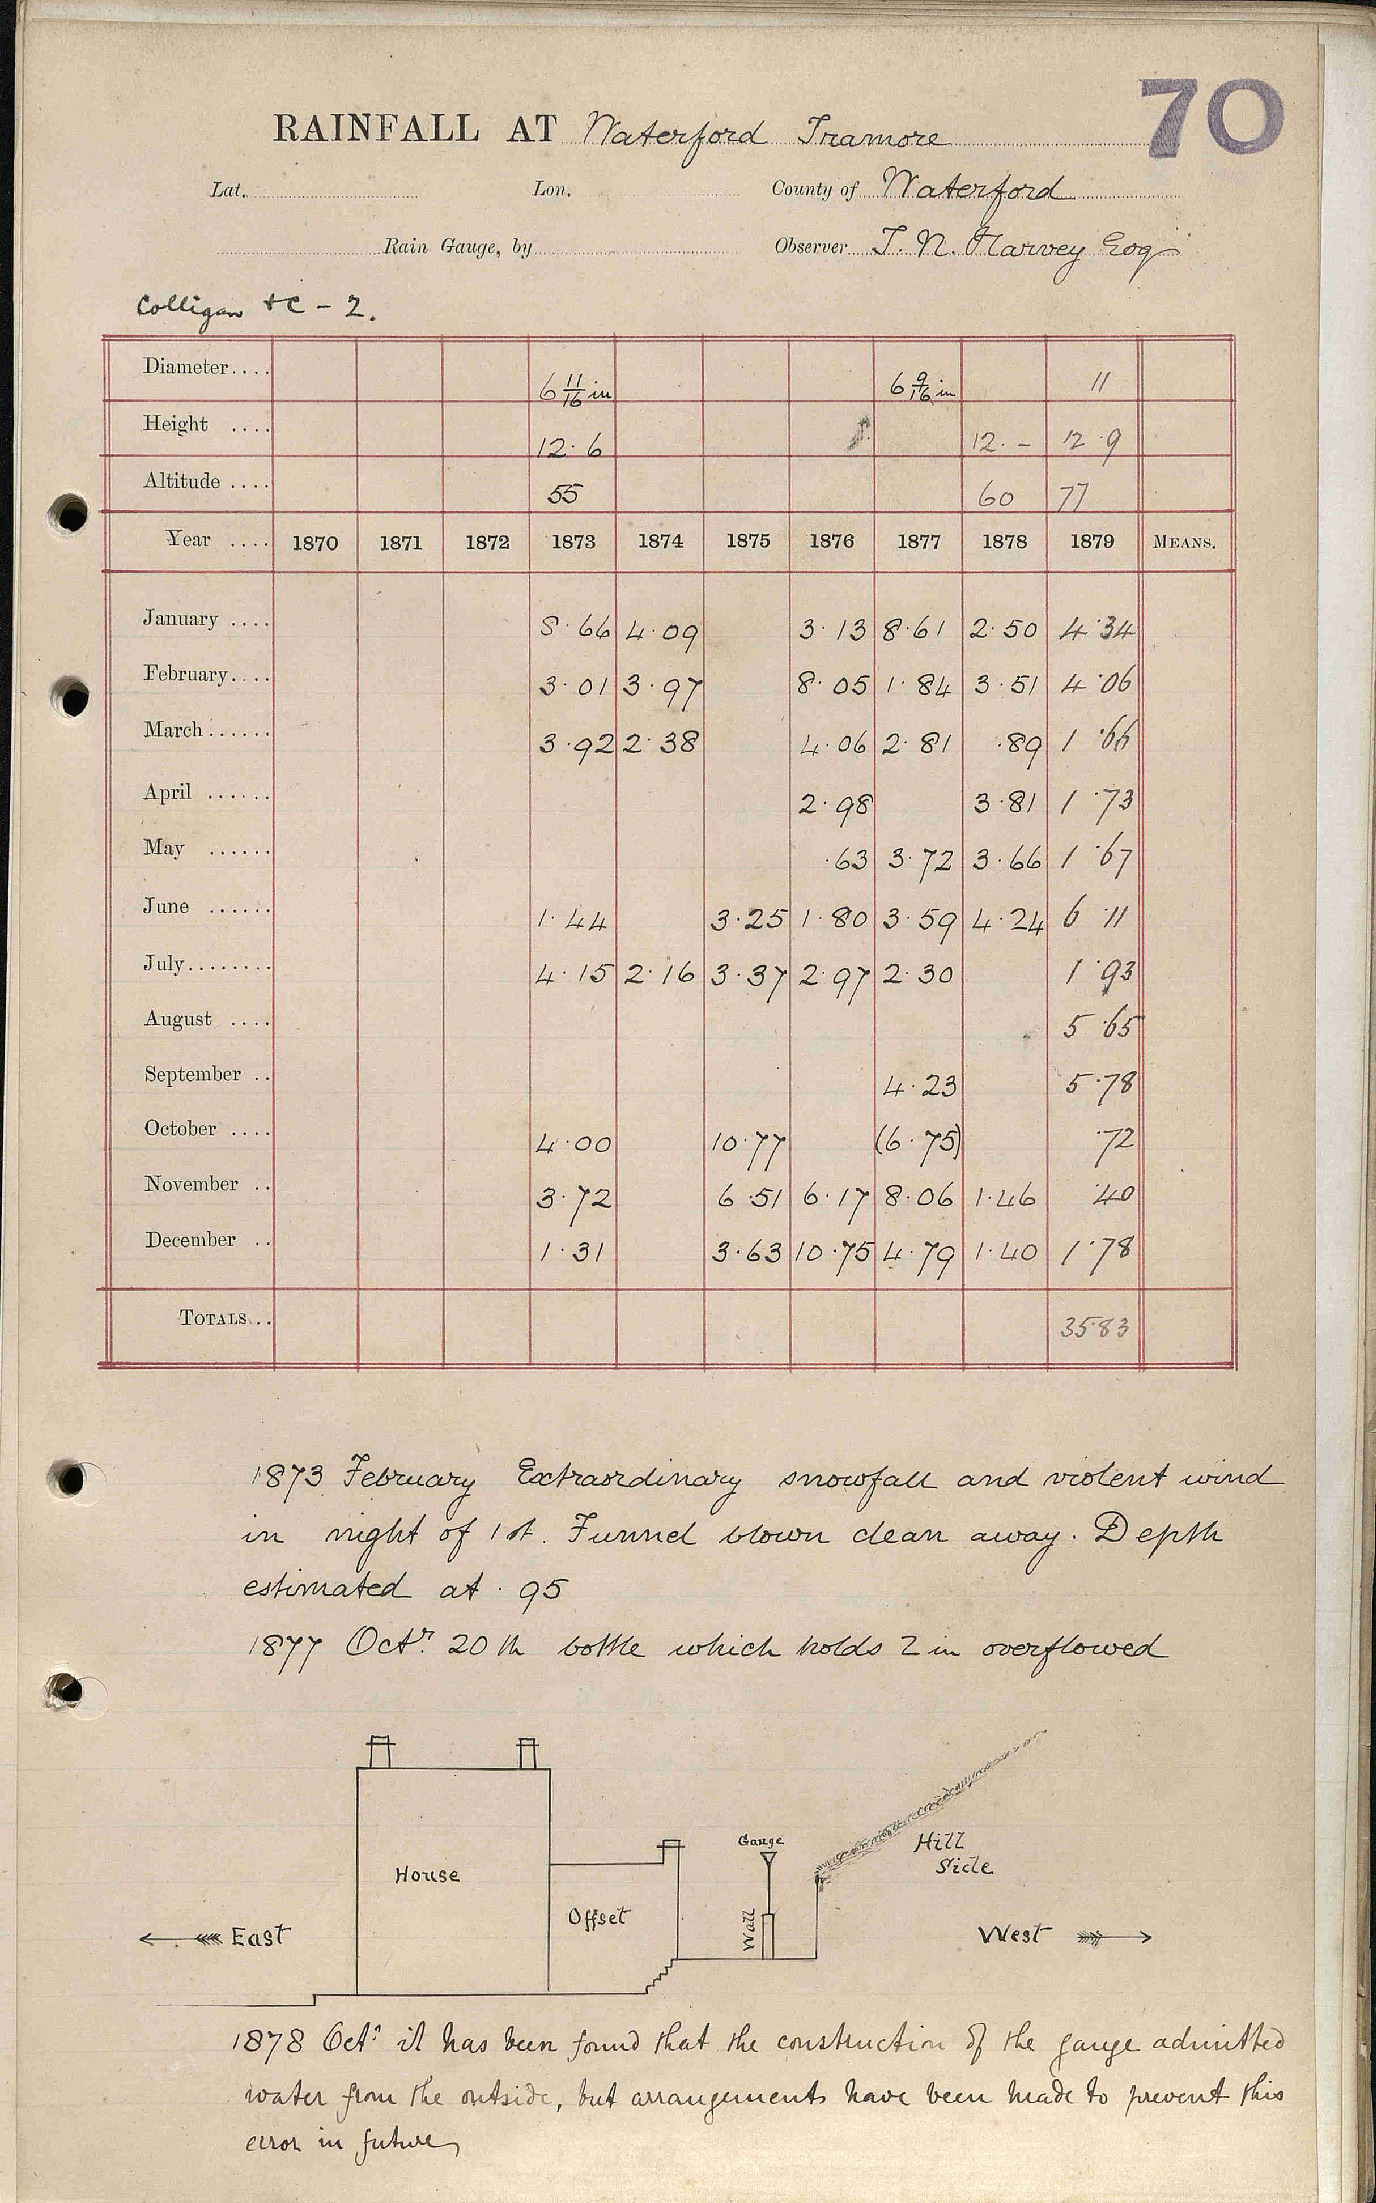 70
RAINFALL AT Waterford Tramore
Lat. Lon. County of Waterford
Rain Gauge, by Observer T. N. Harvey Esq
Colligan + C - 2.
Diameter.... 6 11/16 in 6 9/16 in 11
Height .... 12.6 12.- 12.9
Altitude .... 55 60 77
Year .... 1870 1871 1872 1873 1874 1875 1876 1877 1878 1879 MEANS.
January .... 8.66 4.09 3.13 8.61 2.50 4.34
February.... 3.01 3.97 8.05 1.84 3.51 4.06
March...... 3.92 2.38 4.06 2.81 .89 1.66
April ...... 2.98 3.81 1.73
May ...... .63 3.72 3.66 1.67
June ...... 1.44 3.25 1.80 3.59 4.24 6.11
July........ 4.15 2.16 3.37 2.97 2.30 1.93
August .... 5.65
September .. 4.23 5.78
October .... 4.00 10.77 (6.75) .72
November .. 3.72 6.51 6.17 8.06 1.46 .40
December .. 1.31 3.63 10.75 4.79 1.40 1.78
TOTALS... 35.83
1873 February Extraordinary snowfall and violent wind
in night of 1st. Funnel blown clean away. Depth
estimated at .95
1877 Octr 20th bottle which holds 2 in overflowed
Gauge
Hill
Side
House
Offset
Wall
East
West
1878 Octr it has been found that the construction of the gauge admitted
water from the outside, but arrangements have been made to prevent this
error in future